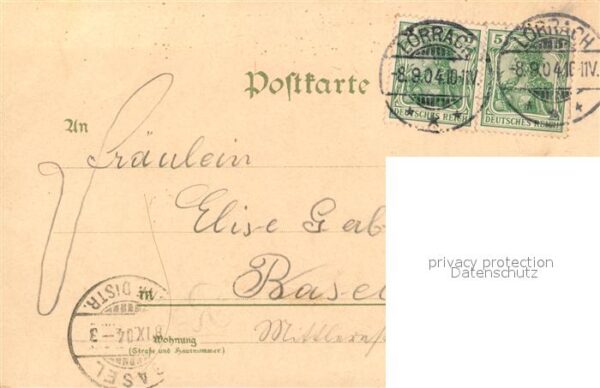 LÖRRACH
-8.9.04.10-11V.
DEUTSCHES REICH
5
LÖRRACH
-8.9.04.10-11V.
DEUTSCHES REICH
Postkarte
An
Fräulein
Elise
privacy protection
Datenschutz
in Basel
DISTR.
IX.04-3
BASEL
Wohnung
(Straße und Hausnummer)